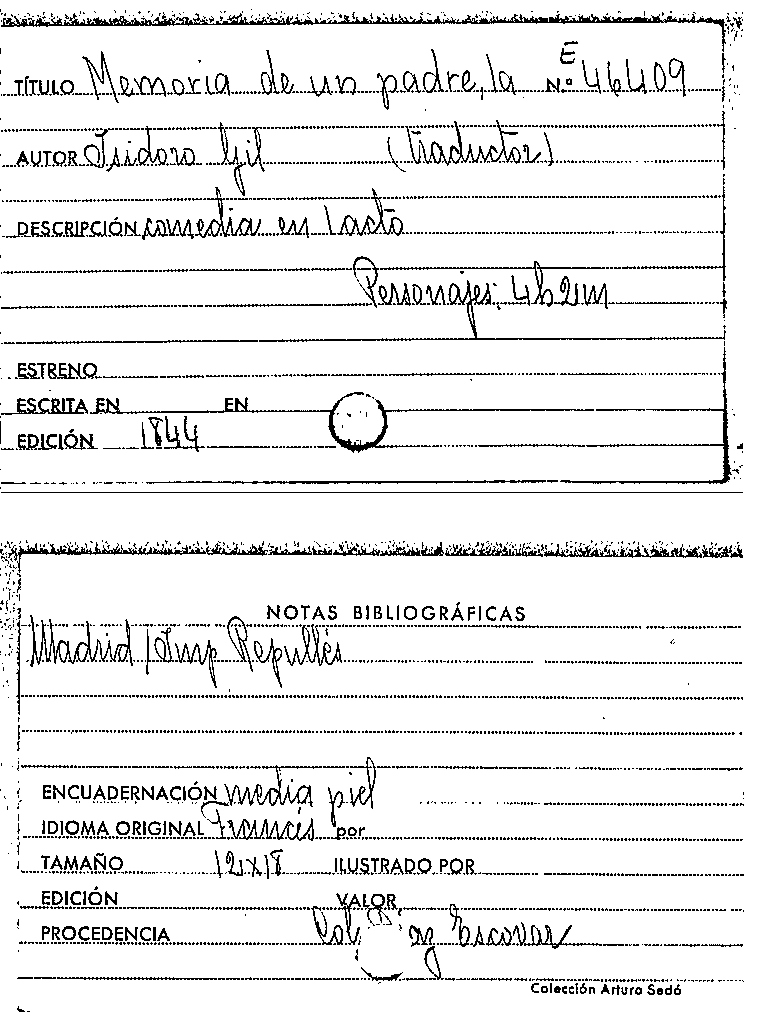 E
TÍTULO Memoria de un padre, la Nº 46409
AUTOR Isidoro Gil (traductor)
DESCRIPCIÓN comedia en 1 acto
Personajes: 4h 2m
ESTRENO
ESCRITA EN EN
EDICIÓN 1844
NOTAS BIBLIOGRÁFICAS
Madrid / Imp Repullés
ENCUADERNACIÓN media piel
IDIOMA ORIGINAL Francés por
TAMAÑO 12x18 ILUSTRADO POR
EDICIÓN VALOR
PROCEDENCIA Col. Escovar
Colección Arturo Sedó